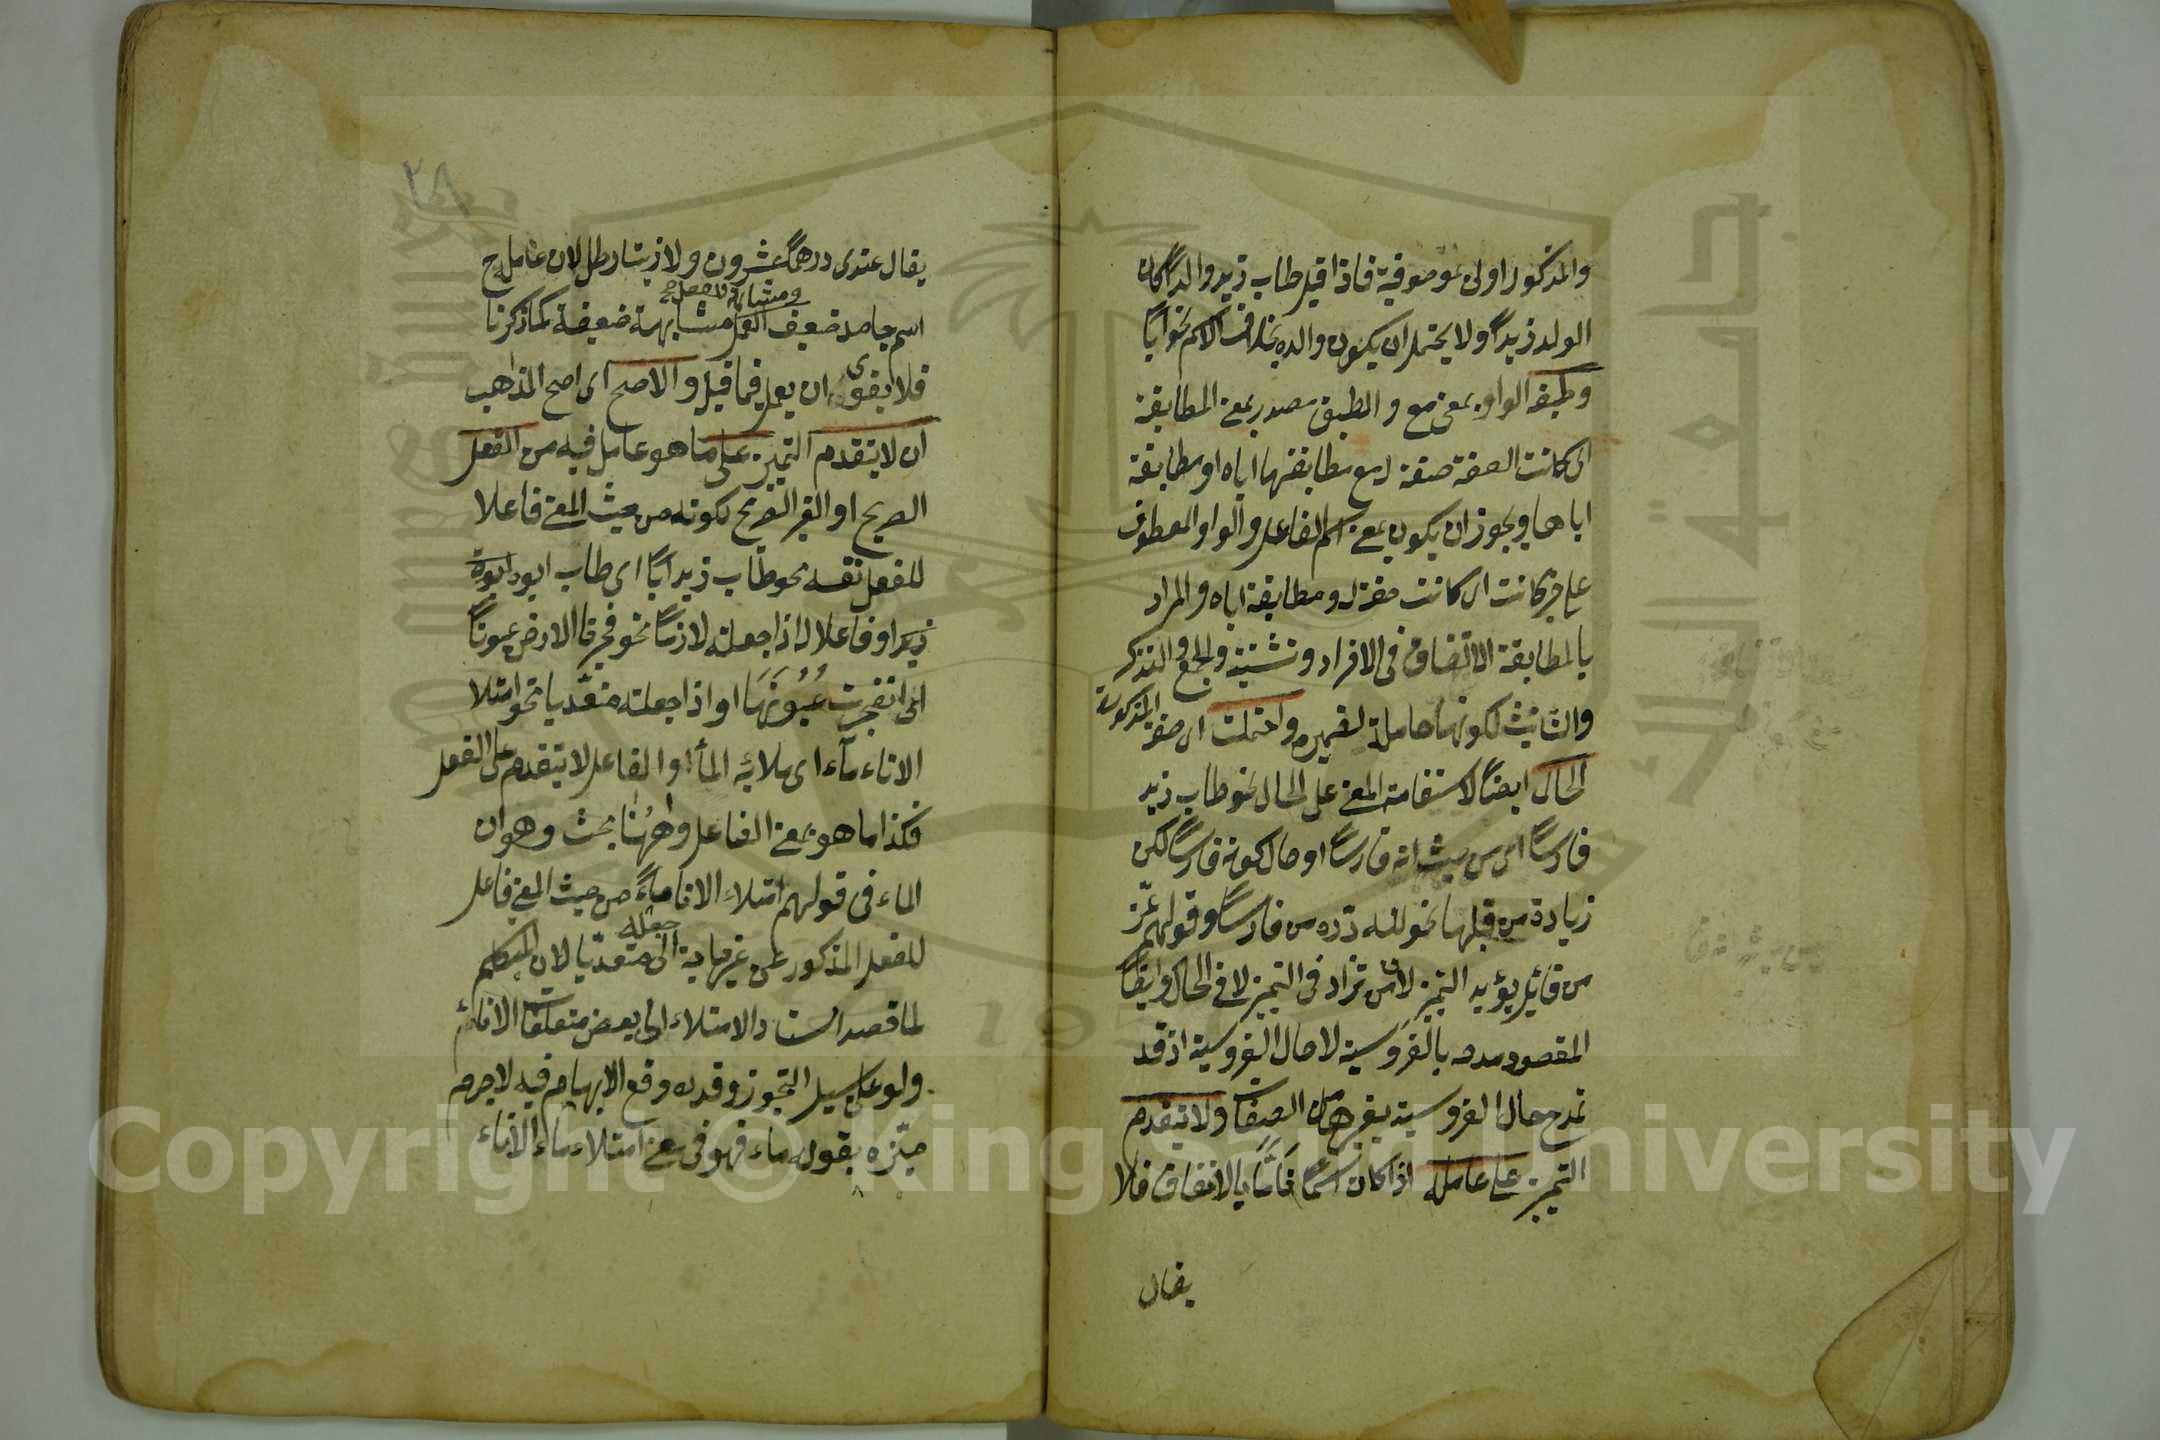 والمذكور اولى بموصوفية فاذا قيل طاب زيد والدا كان
الولد زيدا ولا يحتمل ان يكون والده بخلاف الاسم نحو ابا
وطبقه الواو بمعنى مع والطبق مصدر بمعنى المطابقة
اى كانت الصفة صفة له مع مطابقتها اياه او مطابقة
اياها ويجوز ان يكون بمعنى اسم الفاعل والواو للعطف
على خبر كانت اى كانت صفة له ومطابقة اياه والمراد
بالمطابقة الاتفاق فى الافراد وتثنية والجمع والتذكير
والتانيث لكونها حاملة لضميره واحتملت اى صفة المذكورة
الحال ايضا لاستقامة المعنى على الحال نحو طاب زيد
فارسا اى من حيث انه فارسا او حال كونه فارسا لكن
زيادة من قبلها نحو لله دره من فارسا وقولهم عز
من قائل يؤيد التميز لان من تزاد فى التميز لا فى الحال وايضا
المقصود مدحه بالفروسية لا حال الفروسية اذ قد
تمدح حال الفروسية بغيرها من الصفات ولا يتقدم
التميز على عامله اذا كان اسما تاما بالاتفاق فلا
يقال
٢٨
يقال عندى درهما عشرون ولا زيتا رطل لان عامله ح
اسم جامد ضعيف العمل مشابهة ضعيفة كما ذكرنا
ومشابه للفعل
فلا يقوى ان يعمل فيما قبل والاصح اى اصح المذاهب
ان لا يتقدم التميز على ما هو عامل فيه من الفعل
الصريح او الغير الصريح لكونه من حيث المعنى فاعلا
للفعل نفسه نحو طاب زيد ابا اى طاب ابوه ابوة
زيد او فاعلا له اذا جعلته لازما نحو فجرنا الارض عيونا
اى انفجرت عُيُونَهَا او اذا جعلته متعديا نحو امتلا
الاناء ماء اى ملائه الماء والفاعل لا يتقدم على الفعل
فكذا ما هو بمعنى الفاعل وههنا بحث وهو ان
الماء فى قولهم امتلاء الانا ماءً من حيث المعنى فاعل
للفعل المذكور على غير حاجة الى جعله متعديا لان المتكلم
لما قصد اسناد الامتلاء الى بعض متعلقات الاناء
ولو على سبيل التجوز وقدره وقع الابهام فيه لا جرم
ميزه بقوله ماء فهو فى معنى امتلاء ماء الاناء
Copyright © King Saud University